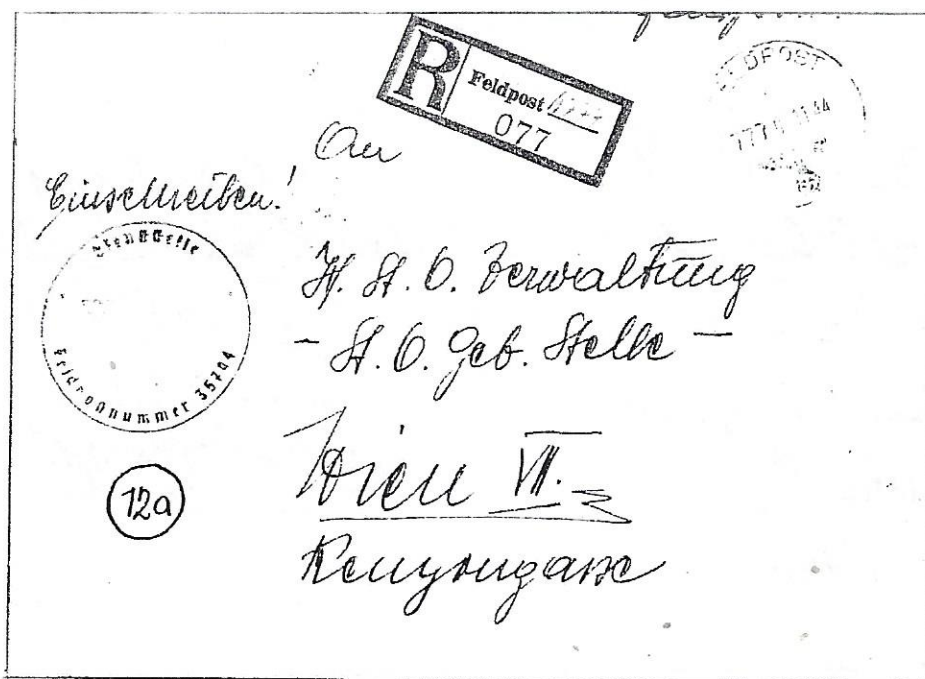 R
Feldpost
077
FELDPOST
An
Einschreiben!
Dienststelle
Feldpostnummer 35704
H. St. O. Verwaltung
- St. O. Geb. Stelle -
Wien VII.
Kenyongasse
12a